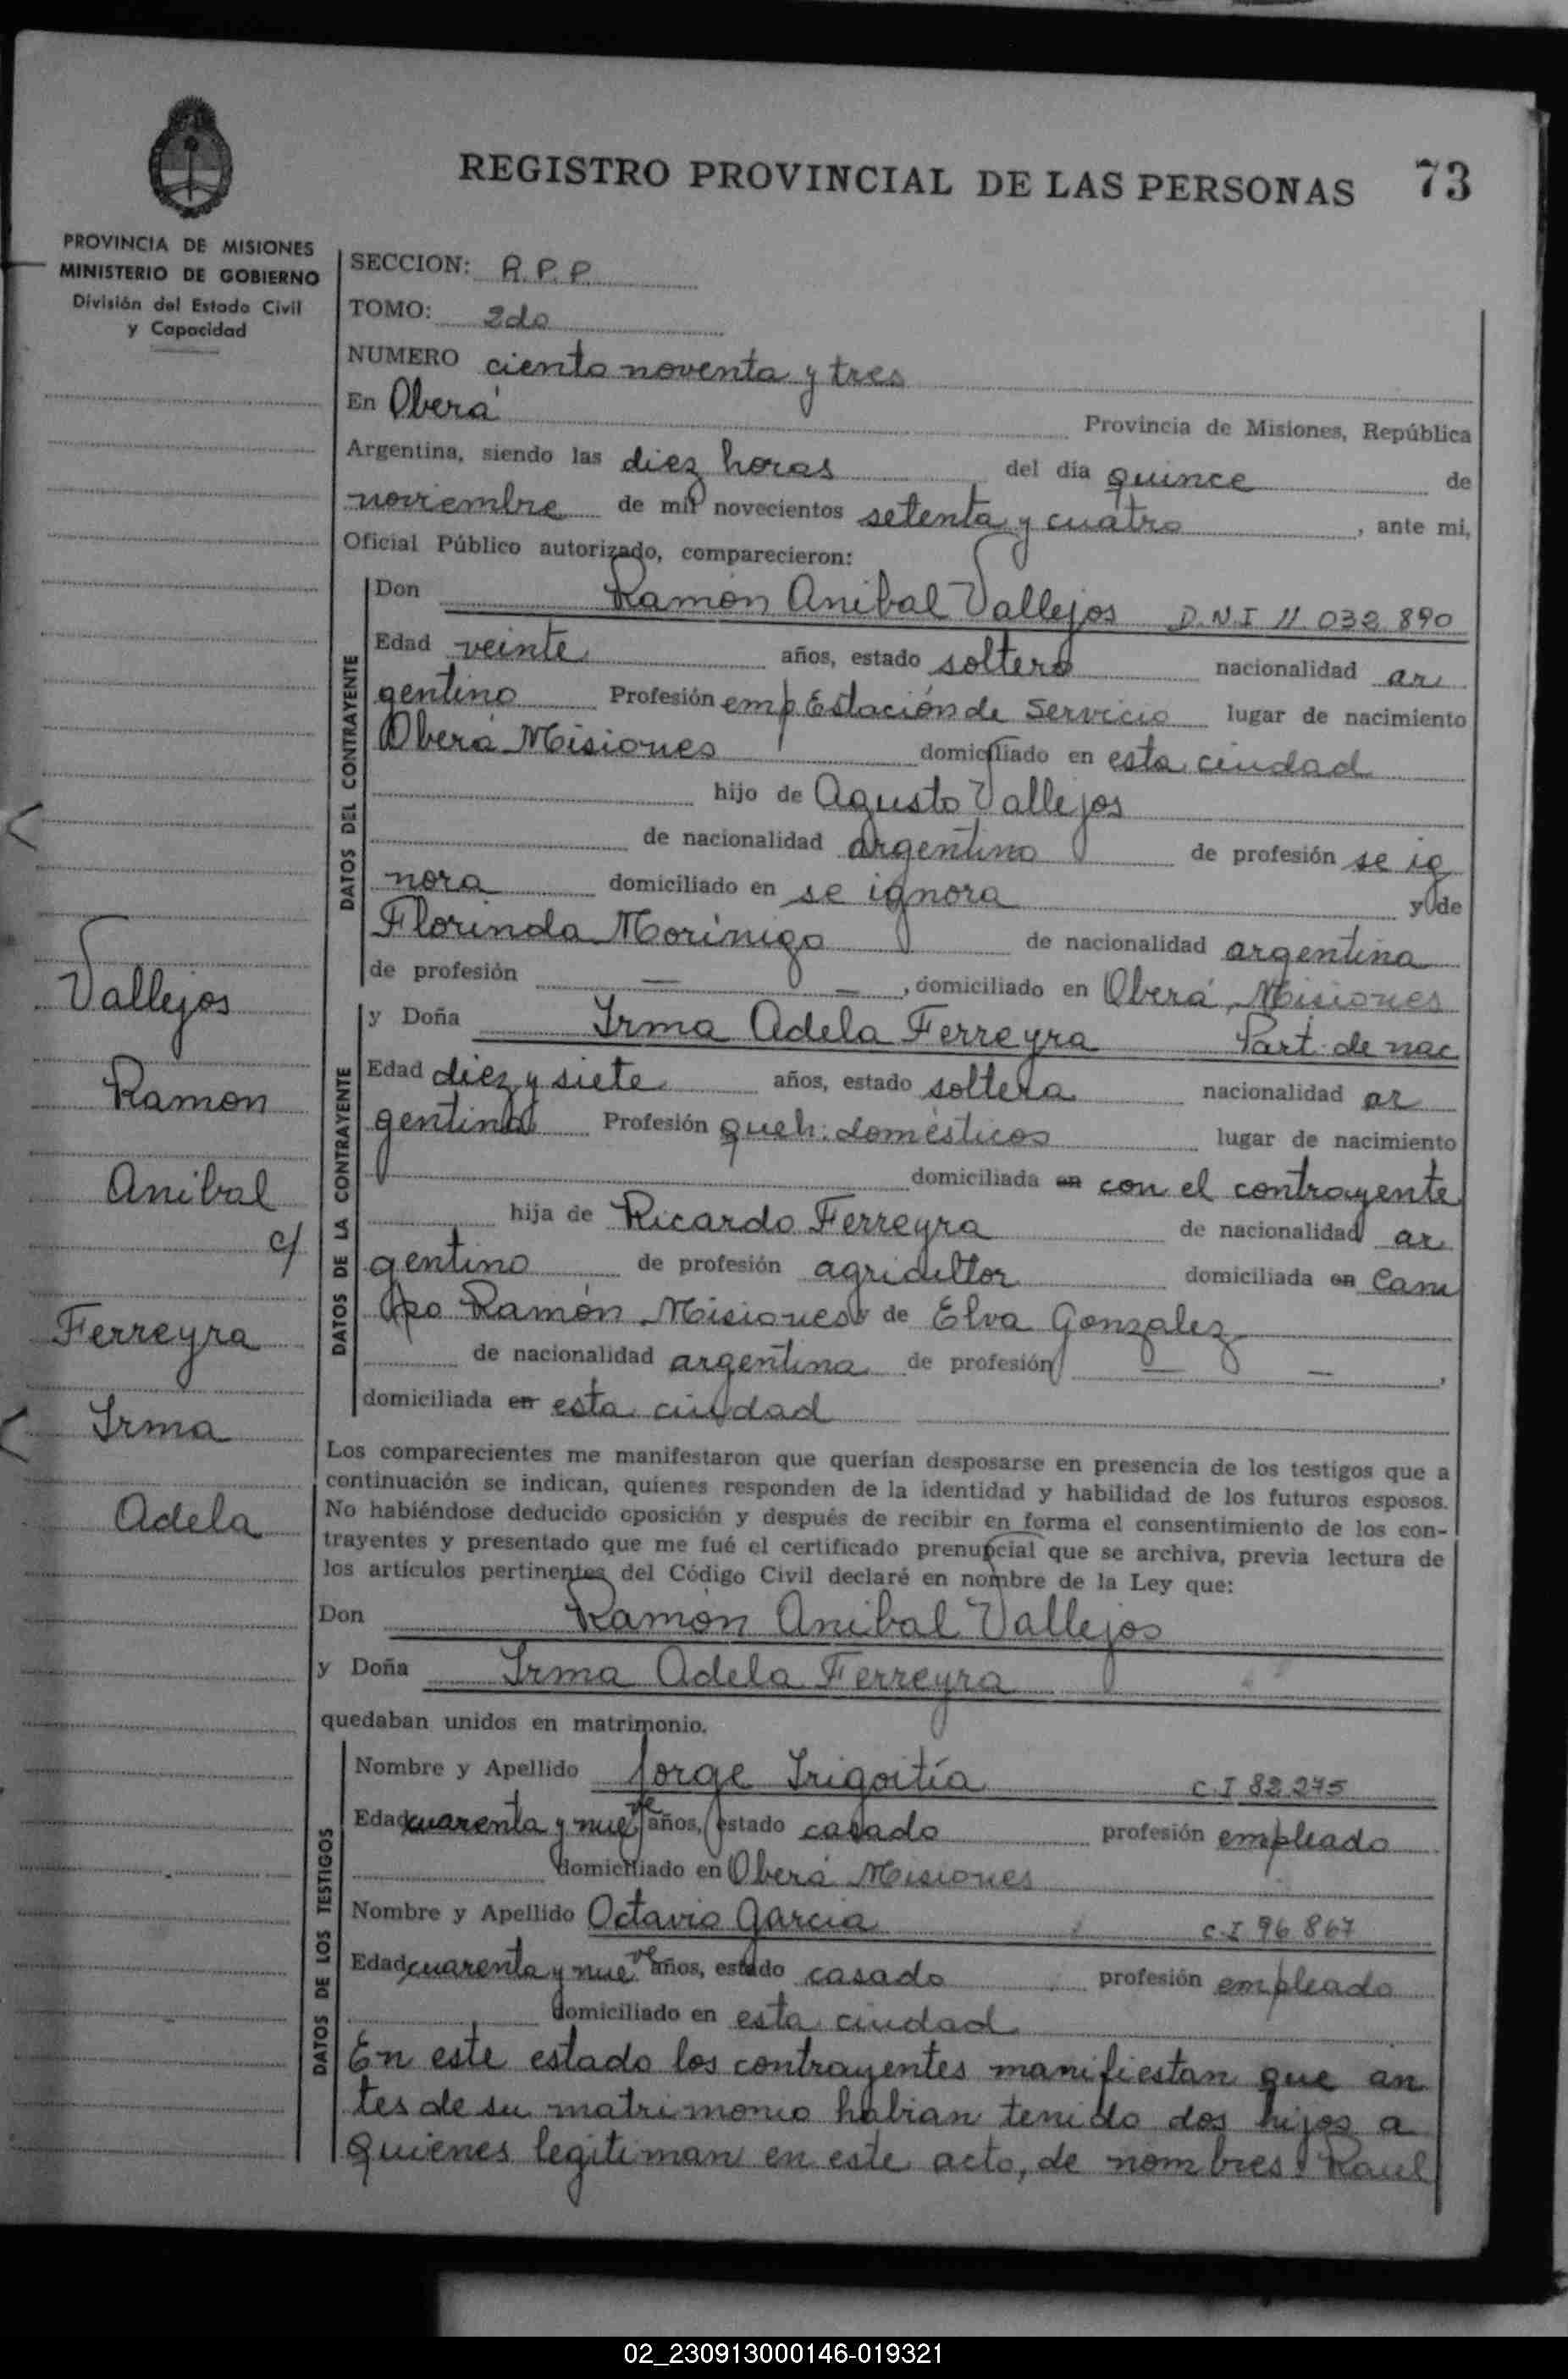 REGISTRO PROVINCIAL DE LAS PERSONAS 73
PROVINCIA DE MISIONES
MINISTERIO DE GOBIERNO
División del Estado Civil
y Capacidad
SECCION: R.P.P.
TOMO: 2do
NUMERO ciento noventa y tres
En Oberá Provincia de Misiones, República
Argentina, siendo las diez horas del día quince de
noviembre de mil novecientos setenta y cuatro, ante mi,
Oficial Público autorizado, comparecieron:
DATOS DEL CONTRAYENTE
Don Ramón Anibal Vallejos D.N.I 11.032.890
Edad veinte años, estado soltero nacionalidad ar
gentino Profesión emp. Estación de Servicio lugar de nacimiento
Oberá Misiones domiciliado en esta ciudad
hijo de Agusto Vallejos
de nacionalidad argentino de profesión se ig
nora domiciliado en se ignora y de
Florinda Morínigo de nacionalidad argentina
de profesión — — , domiciliado en Oberá, Misiones
DATOS DE LA CONTRAYENTE
y Doña Irma Adela Ferreyra Part. de nac
Edad diez y siete años, estado soltera nacionalidad ar
gentina Profesión queh. domésticos lugar de nacimiento
domiciliada en con el contrayente
hija de Ricardo Ferreyra de nacionalidad ar
gentino de profesión agricultor domiciliada en Cam
po Ramón Misiones y de Elva Gonzalez
de nacionalidad argentina de profesión — — ,
domiciliada en esta ciudad
Vallejos
Ramon
Anibal
c/
Ferreyra
Irma
Adela
Los comparecientes me manifestaron que querían desposarse en presencia de los testigos que a
continuación se indican, quienes responden de la identidad y habilidad de los futuros esposos.
No habiéndose deducido oposición y después de recibir en forma el consentimiento de los con-
trayentes y presentado que me fué el certificado prenupcial que se archiva, previa lectura de
los artículos pertinentes del Código Civil declaré en nombre de la Ley que:
Don Ramón Anibal Vallejos
y Doña Irma Adela Ferreyra
quedaban unidos en matrimonio.
DATOS DE LOS TESTIGOS
Nombre y Apellido Jorge Irigoitía C.I 82.275
Edad cuarenta y nueve años, estado casado profesión empleado
domiciliado en Oberá Misiones
Nombre y Apellido Octavio Garcia C.I 96.867
Edad cuarenta y nueve años, estado casado profesión empleado
domiciliado en esta ciudad
En este estado los contrayentes manifiestan que an
tes de su matrimonio habian tenido dos hijos a
quienes legitiman en este acto, de nombres: Raul
02_230913000146-019321